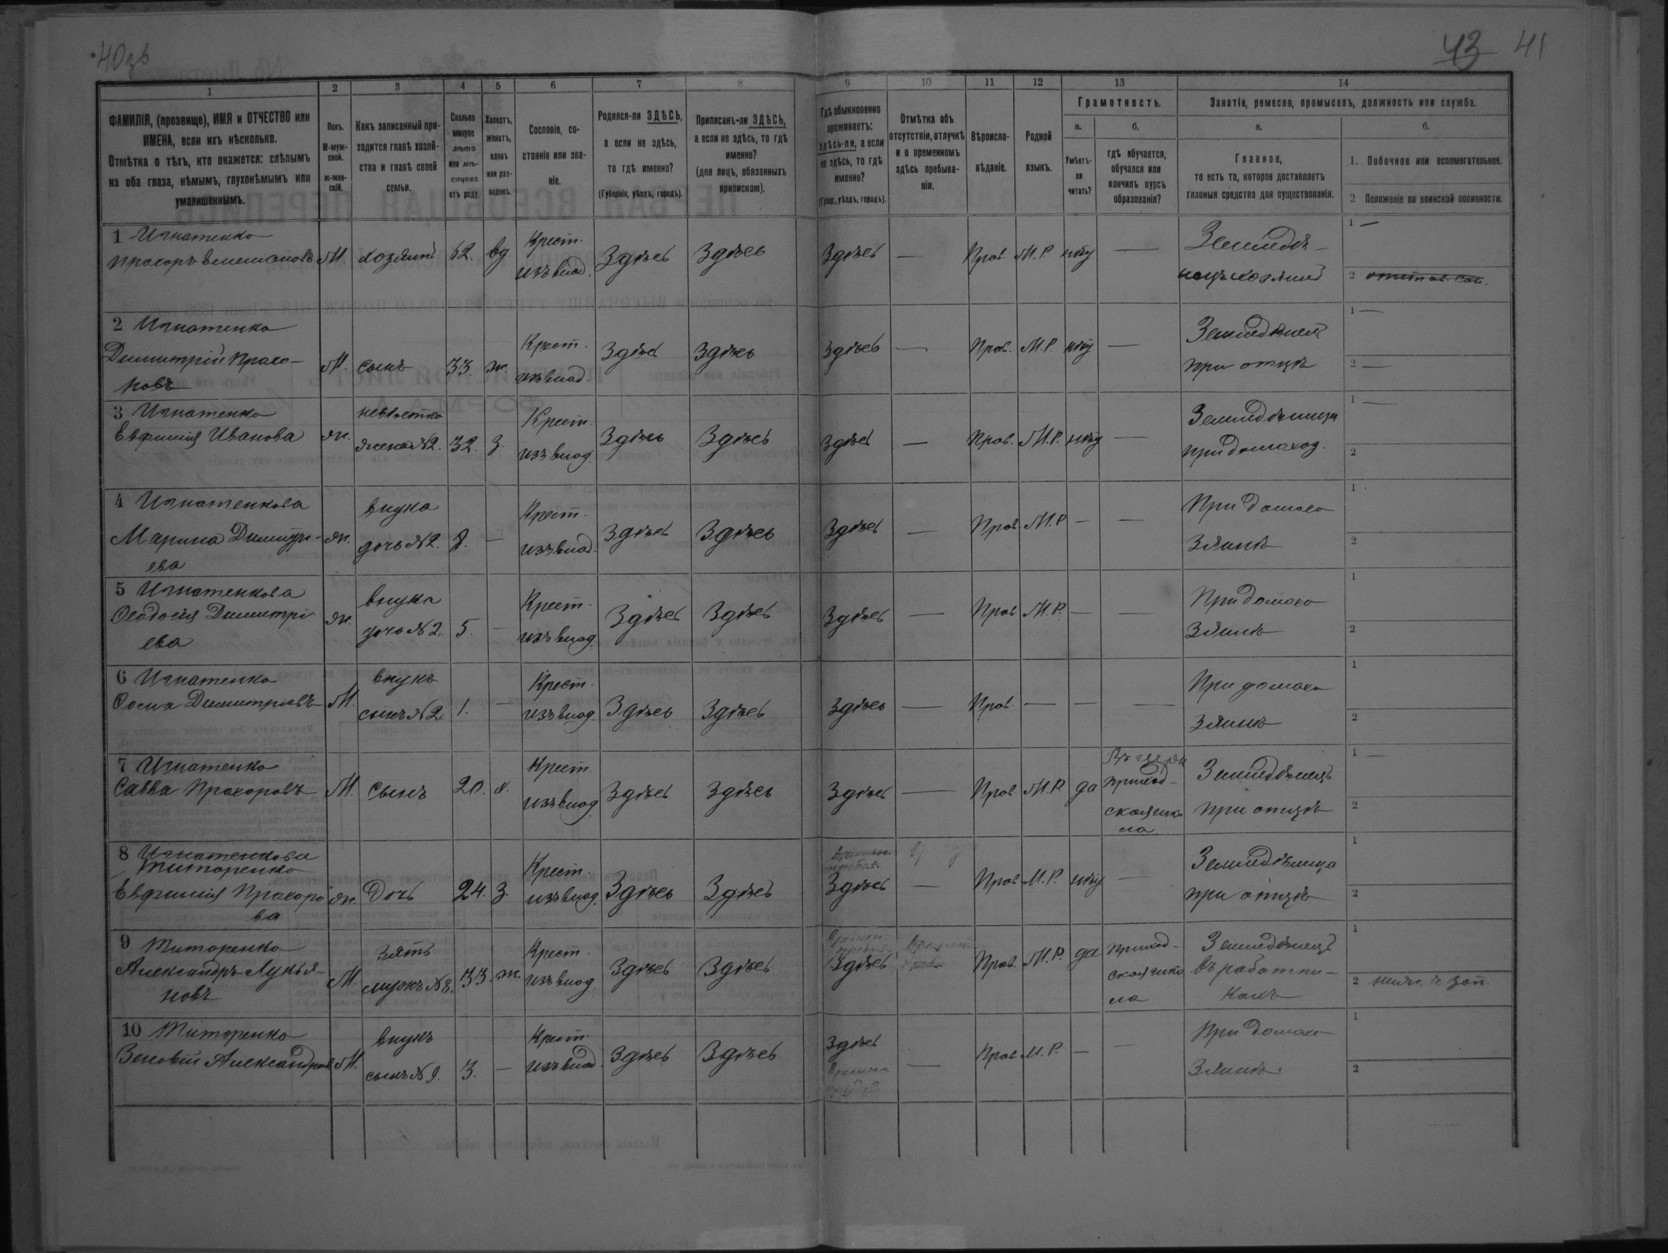 40зв
43 41
1 2 3 4 5 6 7 8 9 10 11 12 13 14
ФАМИЛІЯ, (прозвище), ИМЯ и ОТЧЕСТВО или
ИМЕНА, если ихъ нѣсколько.
Отмѣтка о тѣхъ, кто окажется: слѣпымъ
на оба глаза, нѣмымъ, глухонѣмымъ или
умалишеннымъ.
Полъ.
М-муж-
ской.
ж-жен-
скій.
Какъ записанный при-
ходится главѣ хозяй-
ства и главѣ своей
семьи.
Сколько
минуло
лѣтъ
или мѣ-
сяцевъ
отъ роду.
Холостъ,
женатъ,
вдовъ
или раз-
веденъ.
Сословіе, со-
стояніе или зва-
ніе.
Родился-ли ЗДѢСЬ,
а если не здѣсь,
то гдѣ именно?
(Губернія, уѣздъ, городъ).
Приписанъ-ли ЗДѢСЬ,
а если не здѣсь, то гдѣ
именно?
(для лицъ, обязанныхъ
припискою).
Гдѣ обыкновенно
проживаетъ:
здѣсь-ли, а если
не здѣсь, то гдѣ
именно?
(Губер., уѣздъ, городъ).
Отмѣтка объ
отсутствіи, отлучкѣ
и о временномъ
здѣсь пребыва-
ніи.
Вѣроиспо-
вѣданіе.
Родной
языкъ.
Грамотность.
а.
Умѣетъ-
ли
читать?
б.
гдѣ обучается,
обучался или
кончилъ курсъ
образованія?
Занятіе, ремесло, промыселъ, должность или служба.
а.
Главное,
то есть то, которое доставляетъ
главныя средства для существованія.
б.
1. Побочное или вспомогательное.
2 Положеніе по воинской повинности.
1 Игнатенко
Прохоръ М. хозяинъ 62. вд. Крест. изъ влад. Здѣсь Здѣсь Здѣсь — Прав. М.Р. нѣтъ — 1 —
2
2 Игнатенко
Димитрій Прохо-
ровъ М. сынъ 33 ж. Крест. изъ влад. Здѣсь Здѣсь Здѣсь — Прав. М.Р. нѣтъ — Земледѣлецъ
при отцѣ 1 —
2 —
3 Игнатенко
Евфимія Иванова ж. невѣстка
жена №2. 32. з. Крест. изъ влад. Здѣсь Здѣсь Здѣсь — Прав. М.Р. нѣтъ — Земледѣлица
при домохоз. 1 —
2
4 Игнатенкова
Марина Димитрі-
ева ж. внука
дочь №2. 8. — Крест. изъ влад. Здѣсь Здѣсь Здѣсь — Прав. М.Р. — — При домохо-
зяинѣ 1
2
5 Игнатенкова
Ѳеодосія Димитрі-
ева ж. внука
дочь №2. 5. — Крест. изъ влад. Здѣсь Здѣсь Здѣсь — Прав. М.Р. — — При домохо-
зяинѣ 1
2
6 Игнатенко
Осипъ Димитріевъ М. внукъ
сынъ №2. 1. — Крест. изъ влад. Здѣсь Здѣсь Здѣсь — Прав. — — — При домохо-
зяинѣ 1
2
7 Игнатенко
Савва Прохоровъ М. сынъ 20. х. Крест. изъ влад. Здѣсь Здѣсь Здѣсь — Прав. М.Р. да приход-
ская шко-
ла Земледѣлецъ
при отцѣ 1 —
2
8 Игнатенкова
Титоренко
Евфимія Прохоро-
ва ж. Дочь 24. з. Крест. изъ влад. Здѣсь Здѣсь Здѣсь — Прав. М.Р. нѣтъ — Земледѣлица
при отцѣ 1
2
9 Титоренко
Александръ Лукья-
новъ М. зять
мужъ №8. 33. ж. Крест. изъ влад. Здѣсь Здѣсь Здѣсь Прав. М.Р. да приход-
ская шко-
ла Земледѣлецъ
въ работни-
кахъ 1
2
10 Титоренко
Зеновій Александровъ М. внукъ
сынъ №9. 3. — Крест. изъ влад. Здѣсь Здѣсь Здѣсь — Прав. М.Р. — — При домохо-
зяинѣ 1
2